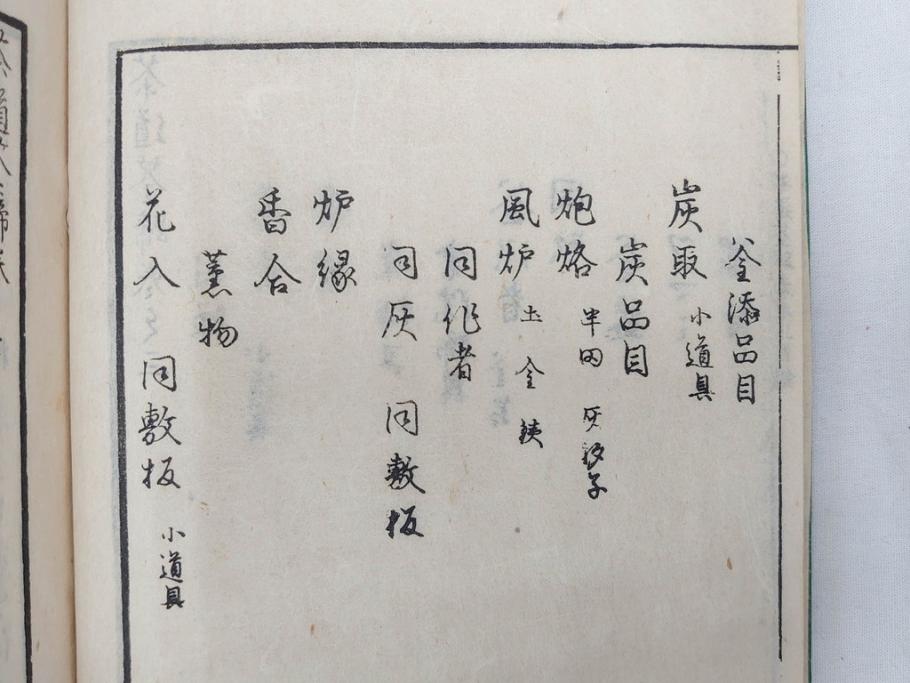 釜添品目
炭取 小道具
炭品目
炮烙 半田 灰抄子
風炉 土 金 鉄
同作者
同灰 同敷板
炉縁
香合
薫物
花入 同敷板 小道具